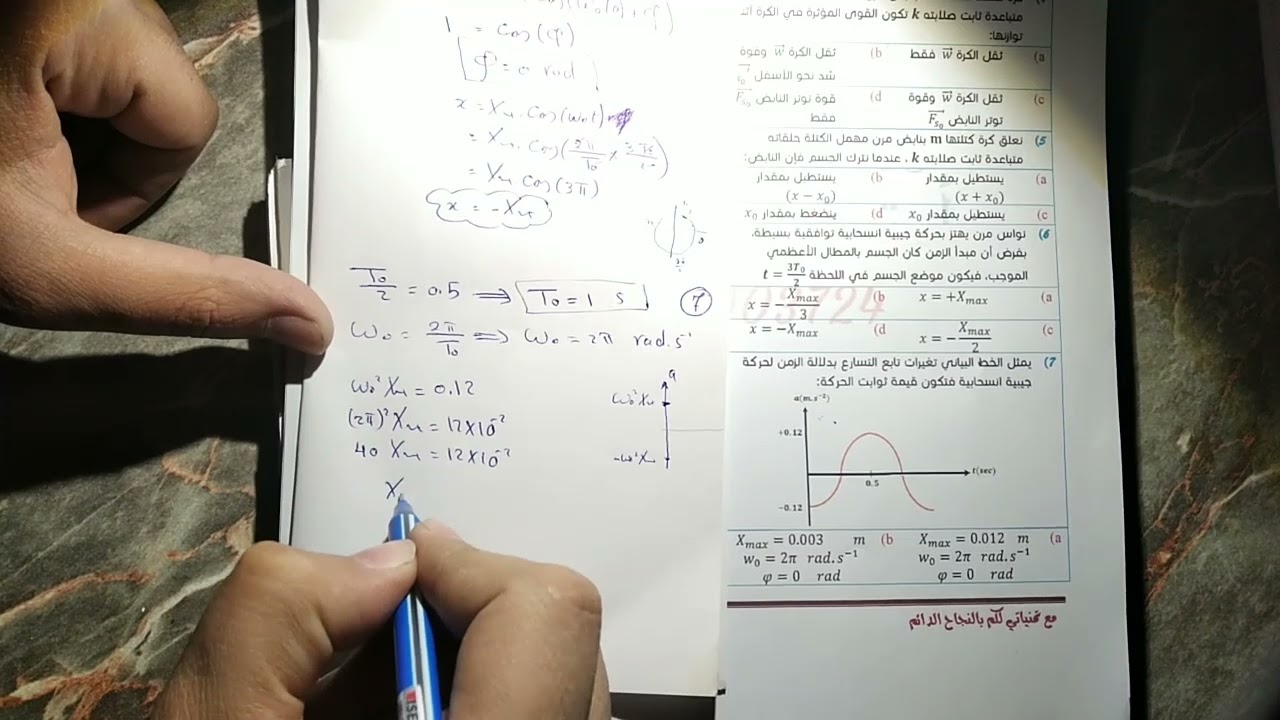 1 = Cos(φ)
φ = 0 rad
x = Xm . Cos(ω0t)
= Xm . Cos(2π/T0 × 3T0/2)
= Xm Cos(3π)
x = -Xm
T0/2 = 0.5 ⟹ T0 = 1 s
7
ω0 = 2π/T0 ⟹ ω0 = 2π rad.s⁻¹
ω0² Xm = 0.12
(2π)² Xm = 12×10⁻²
40 Xm = 12×10⁻²
X
a
ω0²Xm
-ω0²Xm
متباعدة ثابت صلابته k تكون القوى المؤثرة في الكرة
توازنها:
a) ثقل الكرة w⃗ فقط b) ثقل الكرة w⃗ وقوة
شد نحو الأسفل
c) ثقل الكرة w⃗ وقوة d) قوة توتر النابض F⃗s0
توتر النابض F⃗s0 فقط
5) نعلق كرة كتلتها m بنابض مرن مهمل الكتلة حلقاته
متباعدة ثابت صلابته k ، عندما نترك الجسم فإن النابض:
a) يستطيل بمقدار b) يستطيل بمقدار
(x + x0) (x − x0)
c) يستطيل بمقدار x0 d) ينضغط بمقدار x0
6) نواس مرن يهتز بحركة جيبية انسحابية توافقية بسيطة،
بفرض أن مبدأ الزمن كان الجسم بالمطال الأعظمي
الموجب، فيكون موضع الجسم في اللحظة t = 3T0/2
a) x = +Xmax b) x = −Xmax/3
c) x = −Xmax/2 d) x = −Xmax
7) يمثل الخط البياني تغيرات تابع التسارع بدلالة الزمن لحركة
جيبية انسحابية فتكون قيمة ثوابت الحركة:
a(m.s⁻²)
+0.12
t(sec)
0.5
−0.12
a) Xmax = 0.012 m b) Xmax = 0.003 m
w0 = 2π rad.s⁻¹ w0 = 2π rad.s⁻¹
φ = 0 rad φ = 0 rad
مع تمنياتي لكم بالنجاح الدائم